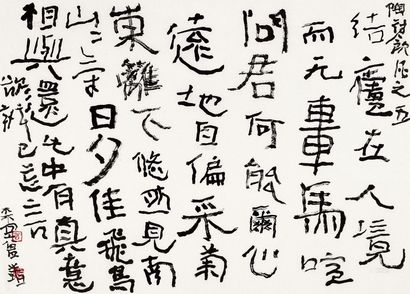 陶詩飲酒之五
結廬在人境
而无車馬喧
問君何能爾心
遠地自偏采菊
東籬下悠然見南
山〻气日夕佳飛鳥
相與還此中有真意
欲辯已忘言